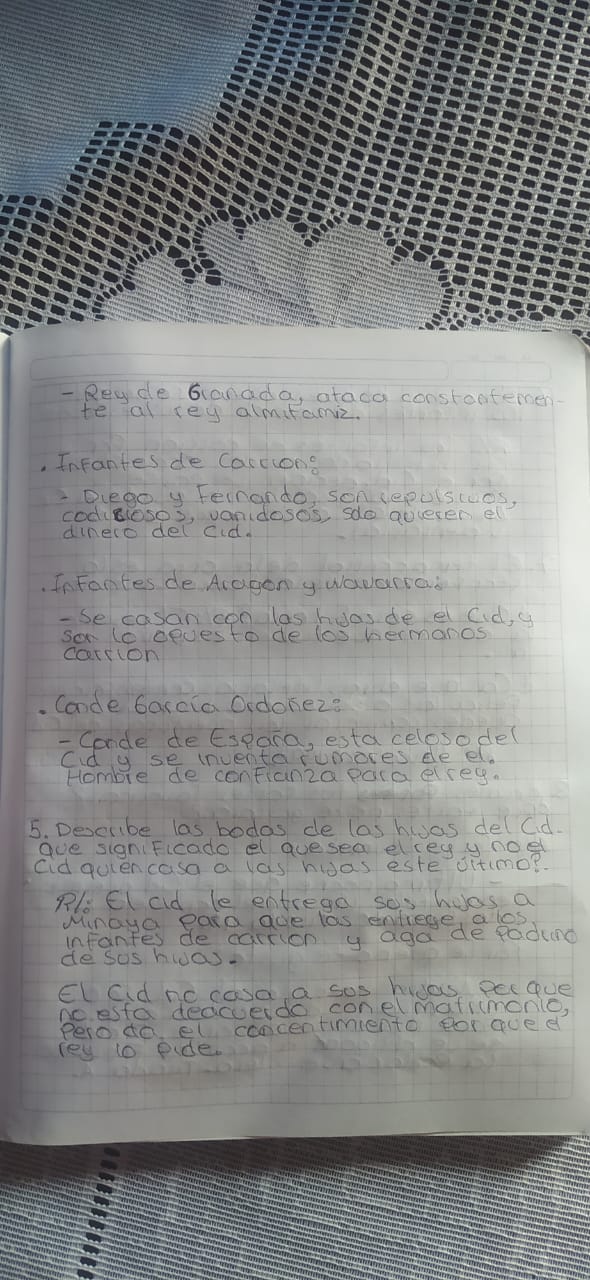 - Rey de Granada, ataca constantemen-
te al rey almutamiz.
. Infantes de Carrion:
- Diego y Fernando, son repulsivos,
codiciosos, vanidosos, solo quieren el
dinero del Cid.
. Infantes de Aragon y Navarra:
- Se casan con las hijas de el Cid, y
son lo opuesto de los hermanos
Carrion
. Conde Garcia Ordoñez:
- Conde de España, esta celoso del
Cid y se inventa rumores de el.
Hombre de confianza para el rey.
5. Describe las bodas de las hijas del Cid.
que significado el que sea el rey y no el
Cid quien casa a las hijas este último?.
R/: El cid le entrega sus hijas a
Minaya para que las entrege a los
infantes de carrion y aga de padrino
de sus hijas.
El Cid no casa a sus hijas por que
no esta deacuerdo con el matrimonio,
pero da el concentimiento por que el
rey lo pide.